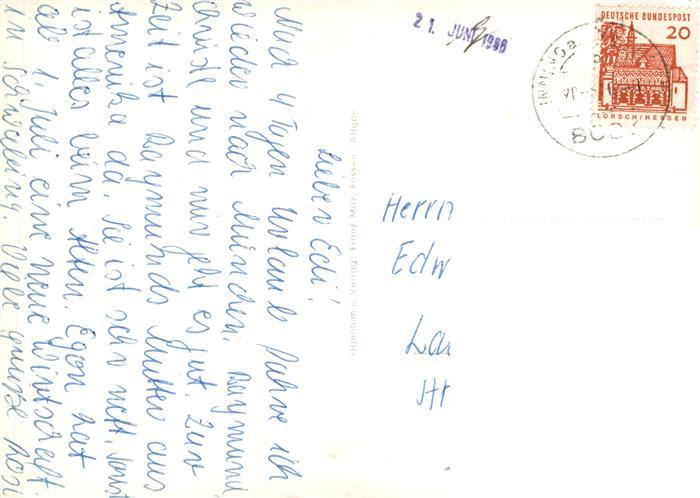 Lieber Edi!
Nach 4 Tagen Urlaub fahre ich
wieder nach München. Raymund
Christl und mir geht es gut. Zur
Zeit ist Raymunds Mutter aus
Amerika da. Sie ist sehr nett, sonst
ist alles beim Alten. Egon hat
ab 1. Juli eine neue Wirtschaft
in Schwabing. Viele Grüße Rosi
Eigentum u. Verlag: Franz Milz, Füssen, Allgäu
21. JUNI 1966
DEUTSCHE BUNDESPOST
20
LORSCH/HESSEN
Herrn
Edw
La
Str